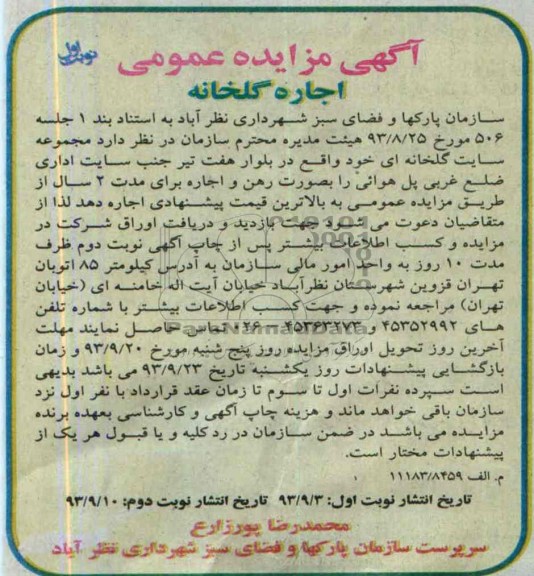 آگهی مزایده عمومی
نوبت اول
اجاره گلخانه
سازمان پارکها و فضای سبز شهرداری نظر آباد به استناد بند ۱ جلسه
۵۰۶ مورخ ۹۳/۸/۲۵ هیئت مدیره محترم سازمان در نظر دارد مجموعه
سایت گلخانه ای خود واقع در بلوار هفت تیر جنب سایت اداری
ضلع غربی پل هوائی را بصورت رهن و اجاره برای مدت ۲ سال از
طریق مزایده عمومی به بالاترین قیمت پیشنهادی اجاره دهد لذا از
متقاضیان دعوت می شود جهت بازدید و دریافت اوراق شرکت در
مزایده و کسب اطلاعات بیشتر پس از چاپ آگهی نوبت دوم ظرف
مدت ۱۰ روز به واحد امور مالی سازمان به آدرس کیلومتر ۸۵ اتوبان
تهران قزوین شهرستان نظرآباد خیابان آیت اله خامنه ای (خیابان
تهران) مراجعه نموده و جهت کسب اطلاعات بیشتر با شماره تلفن
های ۴۵۳۵۲۹۹۲ و ۴۵۳۶۲۲۷۳-۰۲۶ تماس حاصل نمایند مهلت
آخرین روز تحویل اوراق مزایده روز پنج شنبه مورخ ۹۳/۹/۲۰ و زمان
بازگشایی پیشنهادات روز یکشنبه تاریخ ۹۳/۹/۲۳ می باشد بدیهی
است سپرده نفرات اول تا سوم تا زمان عقد قرارداد با نفر اول نزد
سازمان باقی خواهد ماند و هزینه چاپ آگهی و کارشناسی بعهده برنده
مزایده می باشد در ضمن سازمان در رد کلیه و یا قبول هر یک از
پیشنهادات مختار است.
م. الف ۱۱۱۸۳/۸۴۵۹
تاریخ انتشار نوبت اول: ۹۳/۹/۳ تاریخ انتشار نوبت دوم: ۹۳/۹/۱۰
محمدرضا پورزارع
سرپرست سازمان پارکها و فضای سبز شهرداری نظر آباد